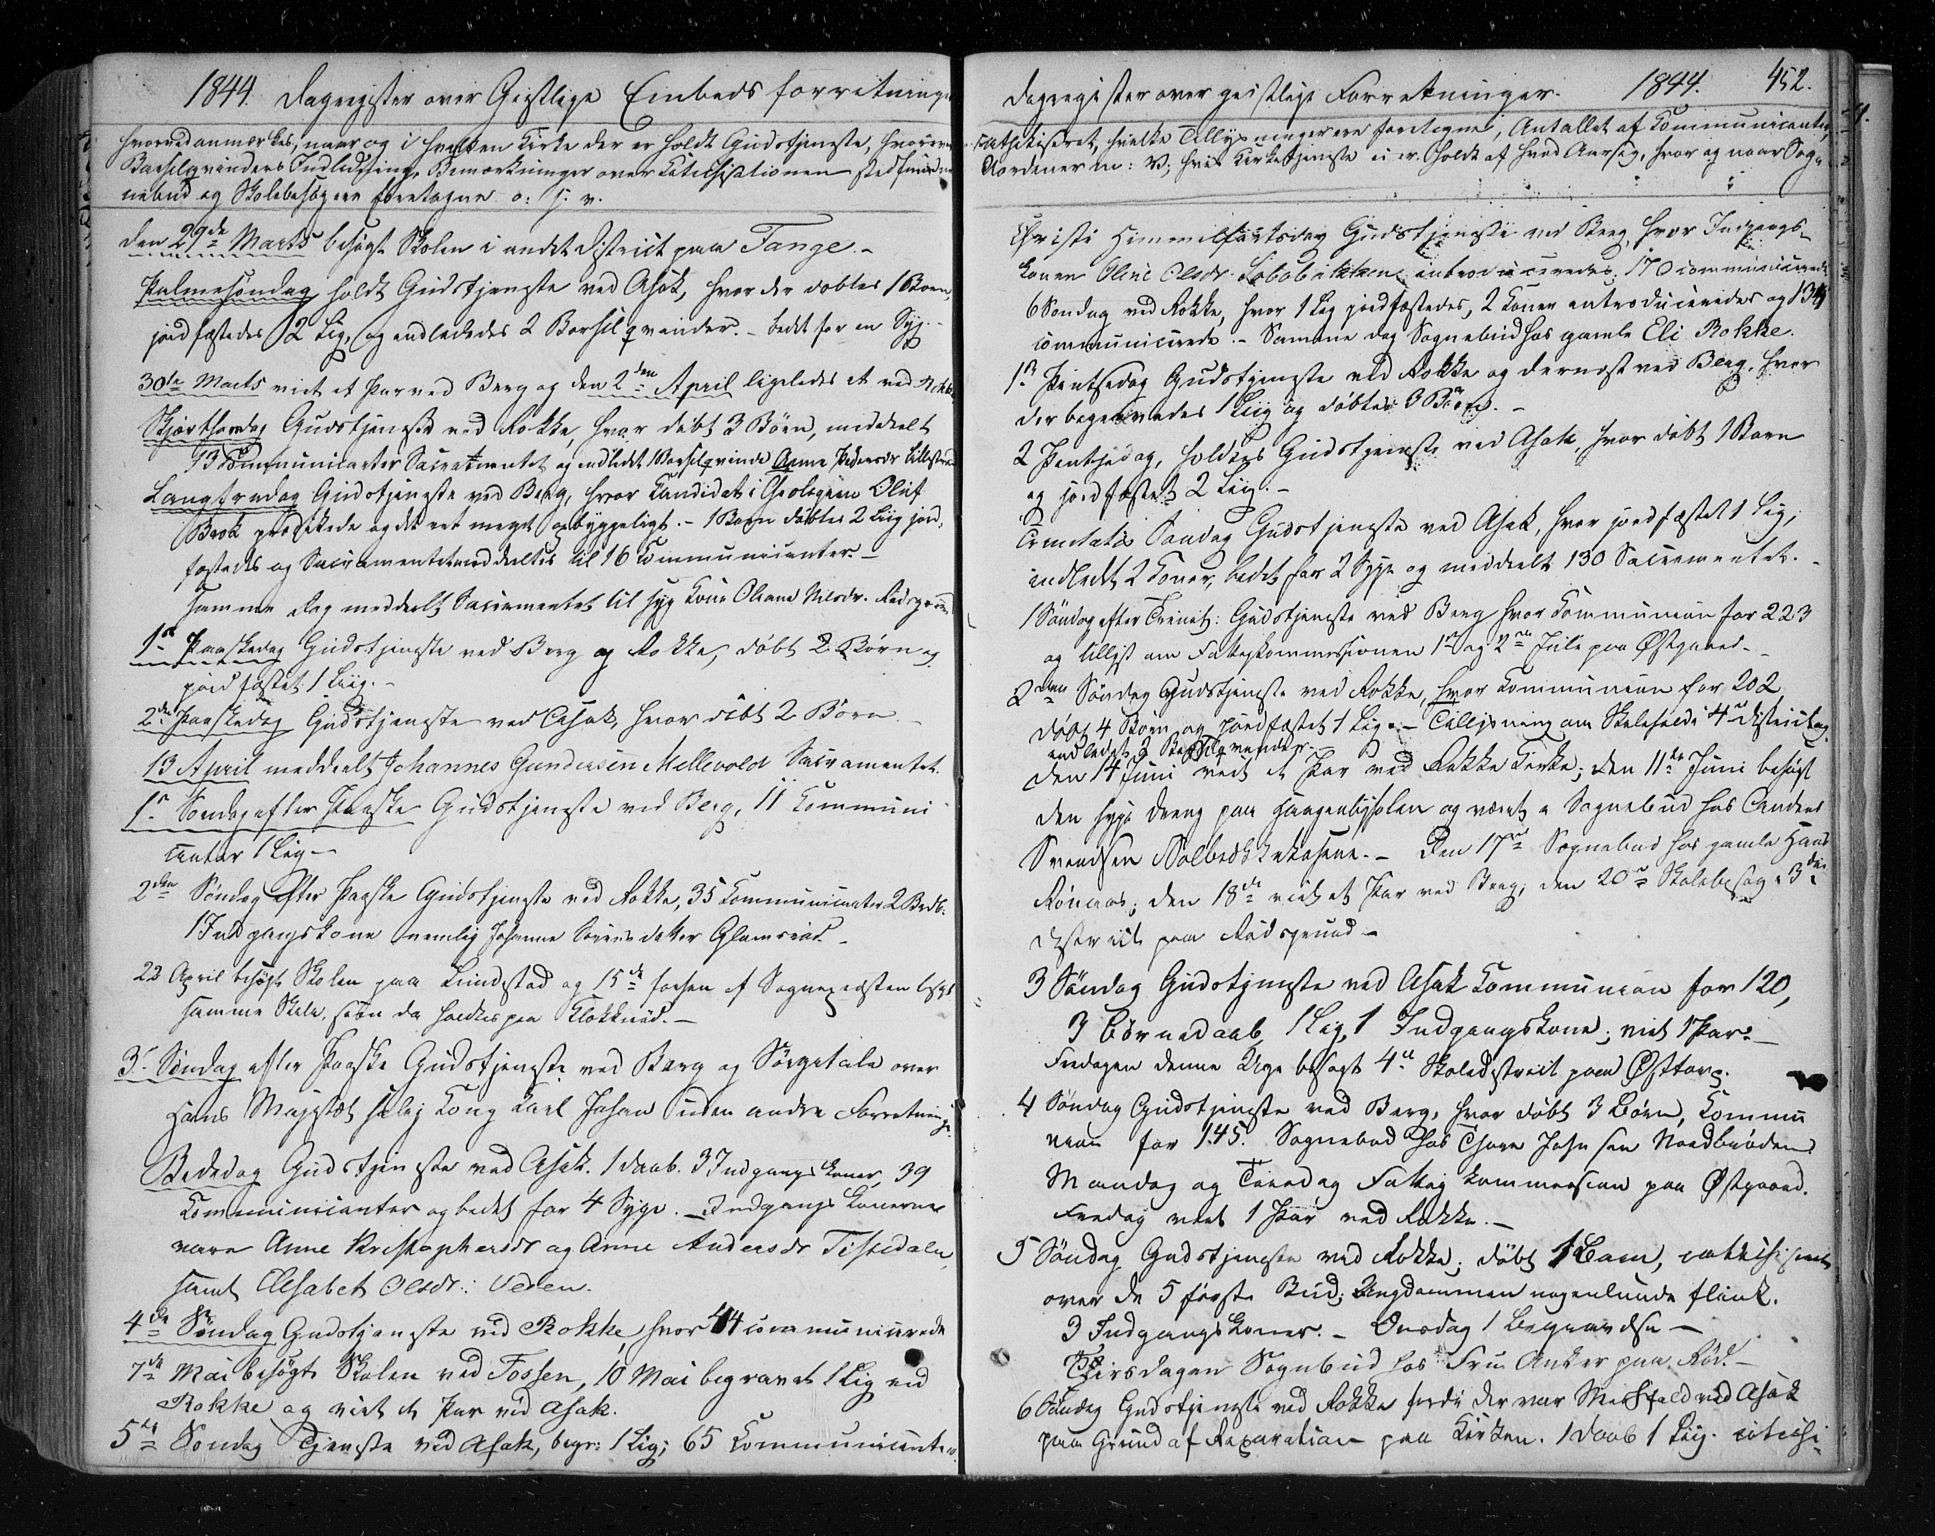 1844. Dagregister over Geistlige Embedsforretninger
hvorved anmærkes, naar og i hvilken Kirke der er holdt Gudstjeneste, hvor
Barselqvinders Indledning, Bemærkninger over Catechisationen
nebud og Skolebesøg ere foretagne o: s: v.
den 29de Marts besøgt Skolen i andet District paa Tange. -
Palmesøndag holdt Gudstjeneste ved Asak, hvor der døbtes 1 Barn,
jordfæstedes 2 Lig, og indlededes 2 Barselqvinder. - bedt for en Syg. -
30te Marts viet et Par ved Berg og den 2den April ligeledes et ved Rokke
Skjærthorsdag Gudstjeneste ved Rokke, hvor døbt 3 Børn, meddeelt
13 Communicanter Sacramentet og indledet 1 Barselqvinde Anne Pedersdr
Langfredag Gudstjeneste ved Berg, hvor Candidat i Theologien Oluf
Brok prædikede og det ret meget opbyggeligt. - 1 Barn døbtes 2 Liig jord-
fæstedes og Sacramentet meddeeltes til 16 Communicanter. -
Samme Dag meddeelt Sacramentet til syg Kone Oleane Nilsdr.
1ste Paaskedag Gudstjeneste ved Berg og Rokke, døbt 2 Børn og
jordfæstet 1 Liig. -
2den Paaskedag Gudstjeneste ved Asak, hvor døbt 2 Børn -
13 April meddeelt Johannes Gundersen Mellevold Sacramentet.
1ste Søndag efter Paaske Gudstjeneste ved Berg, 11 Communi
canter 1 Lig -
2den Søndag efter Paaske Gudstjeneste ved Rokke, 35 Communicanter
1 Indgangskone nemlig Johanne Sørensdatter -
22 April besøgt Skolen paa Lundestad og 15de forhen af Sognepræsten
samme Skole, som da holdtes paa Klokkerød. -
3die Søndag efter Paaske Gudstjeneste ved Berg og Sørgetale over
Hans Majestæt salig Kong Carl Johan uden andre Forretninger
Bededag Gudstjeneste ved Asak. 1 Daab. 3 Indgangskoner, 39
Communicanter og bedet for 4 Syge. - Indgangskonerne
vare Anne Kristophersdr og Anne Andersdr Tistedalen,
samt Elisabet Olsdr: Veden.
4de Søndag Gudstjeneste ved Rokke, hvor 44 communicerede
7de Mai besøgt Skolen ved Fossen, 10 Mai begravet 1 Lig ved
Rokke og viet et Par ved Asak.
5te Søndag Tjeneste ved Asak, begr: 1 Lig; 65 Communicanter
Dagregister over geistlige Forretninger. 1844. 452.
catechiseret, hvilke Tillysninger ere foretagne, Antallet af Communicanter,
hvis Kirketjeneste ei er holdt af hvad Aarsag, hvor og naar Sog-
Christi Himmelfartsdag Gudstjeneste ved Berg, hvor Indgangs-
konen Oline Olsdr introduceredes; 170 communicerede
6 Søndag ved Rokke, hvor 1 Lig jordfæstedes, 2 Koner introduceredes og
communicerede. - Samme Dag Sognebud hos gamle Eli Rokke.
1ste Pintsedag Gudstjeneste ved Rokke og dernæst ved Berg, hvor
der begravedes 1 Liig og døbtes 3 Børn. -
2 Pintsedag, holdtes Gudstjeneste ved Asak, hvor døbt 1 Barn
og jordfæstet 2 Liig. -
Trinitatis Søndag Gudstjeneste ved Asak, hvor jordfæstet 1 Lig,
indledt 2 Koner, bedet for 2 Syge og meddeelt 130 Sacramentet. -
1 Søndag efter Trinit: Gudstjeneste ved Berg hvor Communion for 223
og tillyst om Fattigkommissionen 1ste og 2den Juli paa Østgaard. -
2den Søndag Gudstjeneste ved Rokke, hvor Communion for 202
døbt 4 Børn og jordfæstet 1 Lig. - Tillysning om Skolehold i 4de District og
indledet 3 Barselqvinder.
den 14 Juni viet et Par ved Rokke Kirke; den 11te Juni besøgt
den syge Dreng paa og været i Sognebud hos Anders
Svendsen - Den 17de Sognebud hos gamle Hans
den 18de viet et Par ved Berg; den 20de Skolebesøg i 3die
District paa Rødsgrund -
3 Søndag Gudstjeneste ved Asak Communion for 120,
3 Børnedaab, 1 Lig, 1 Indgangskone; viet 1 Par. -
Fredagen denne Uge besøgt 4de Skoledistrict paa Østtorp.
4 Søndag Gudstjeneste ved Berg, hvor døbt 3 Børn, Commu
nion for 145. Sognebud hos Thore Johnsen
Mandag og Tirsdag Fattigkommission paa Østgaard.
Fredag viet 1 Par ved Rokke. -
5 Søndag Gudstjeneste ved Rokke; døbt 1 Barn, catechiseret
over de 5 første Bud; Ungdommen nogenlunde flink.
3 Indgangskoner. - Onsdag 1 Begravelse -
Tirsdagen Sognebud hos Fru Anker paa Rød. -
6 Søndag Gudstjeneste ved Rokke fordi der var Messefald ved Asak
paa Grund af Reparation paa Kirken. 1 Daab 1 Liig. catechi-